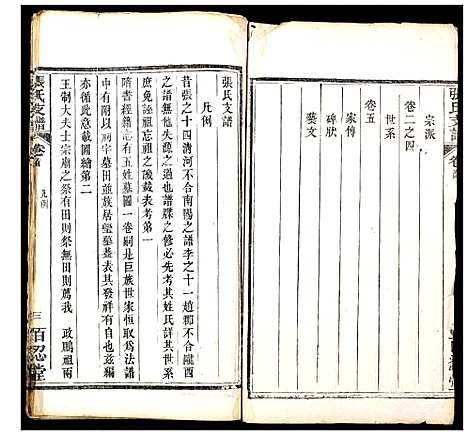 張氏支譜
卷首
宗派
卷二之四
世系
卷五
家傳
碑狀
藝文
張氏支譜
凡例
昔張之十四清河不合南陽之譜李之十一趙郡不合隴西
之譜無他失源之過也譜牒之修必先考其姓氏詳其宗
庶免誣祖忘祖之譏截表考第一
隋書經籍志有楊氏五姓墓圖一卷嗣是巨族世家恒取為法譜
中有附以祠宇者其族居塋墓蓋表其發祥有自也茲編
亦循此意截圖繪第二
王制大夫士宗廟之祭有田則祭無田則薦我 政鵬祖兩
張氏支譜
卷首
凡例
三
百忍堂